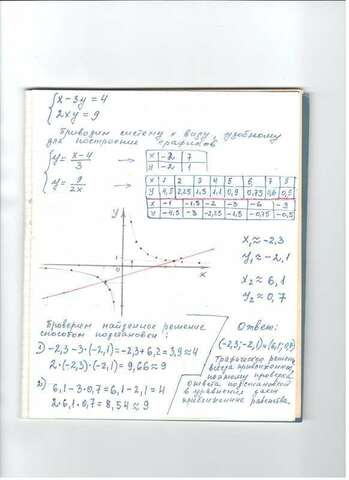 {x-3y=4
2xy=9
Приводим систему к виду, удобному
для построения графиков
{y=x-4/3 → x -2 7
y -2 1
y=9/2x → x 1 2 3 4 5 6 7 8
y 4,5 2,25 1,5 1,1 0,9 0,75 0,6 0,5
x -1 -1,5 -2 -3 -6 -9
y -4,5 -3 -2,25 -1,5 -0,75 -0,5
y
1
0 1
x
x₁≈-2,3
y₁≈-2,1
x₂≈6,1
y₂≈0,7
Проверим найденное решение
способом подстановки:
1) -2,3-3·(-2,1)=-2,3+6,2=3,9≈4
2·(-2,3)·(-2,1)=9,66≈9
2) 6,1-3·0,7=6,1-2,1=4
2·6,1·0,7=8,54≈9
Ответ:
(-2,3;-2,1)
Графическое решен.
всегда
поэтому проверка
ответа подстановкой
в уравнения даёт
равенства.